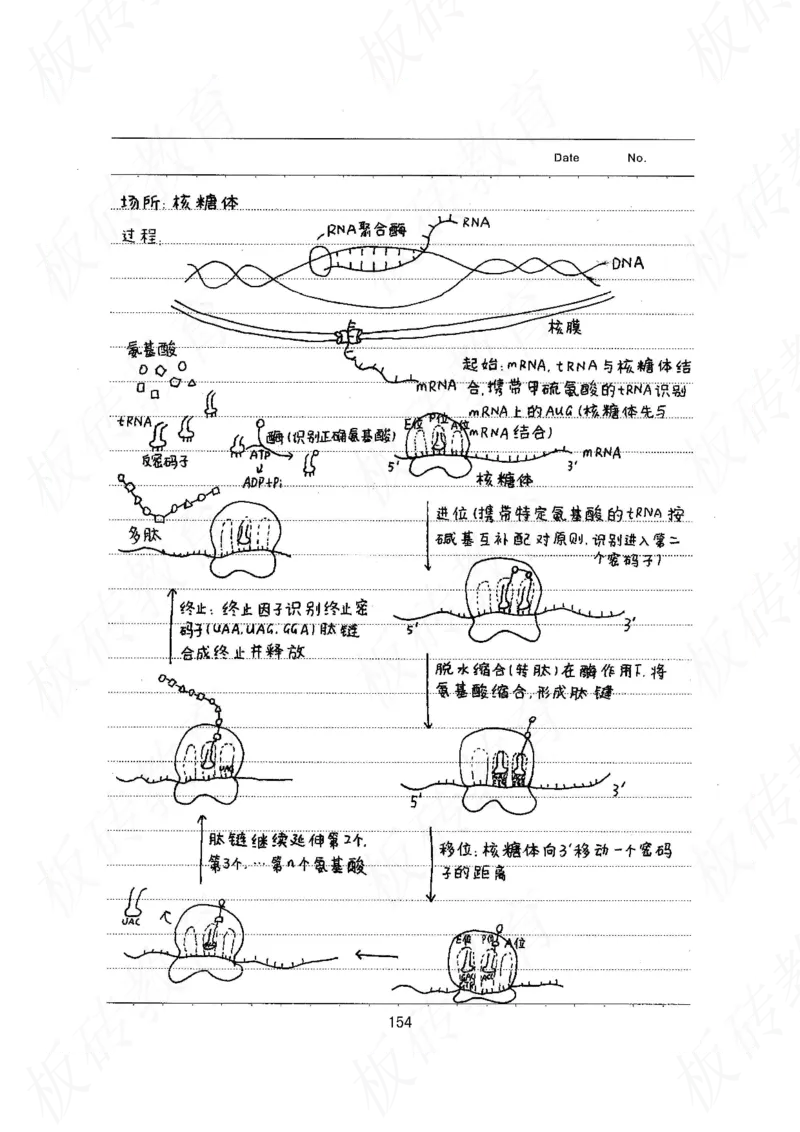 Date No.
场所:核糖体
过程:
RNA聚合酶
RNA
DNA
核膜
氨基酸
mRNA
起始:mRNA,tRNA与核糖体结
合,携带甲硫氨酸的tRNA识别
mRNA上的AUG(核糖体先与
mRNA结合)
tRNA
反密码子
酶(识别正确氨基酸)
ATP
ADP+Pi
E位 P位 A位
mRNA
5' 3'
核糖体
多肽
进位(携带特定氨基酸的tRNA按
碱基互补配对原则,识别进入第二
个密码子)
5' 3'
终止:终止因子识别终止密
码子(UAA,UAG,GGA)肽链
合成终止并释放
脱水缩合(转肽)在酶作用下,将
氨基酸缩合,形成肽键
UAG
5' 3'
肽链继续延伸第2个,
第3个,…第n个氨基酸
移位:核糖体向3'移动一个密码
子的距离
UAC
E位 P位 A位
154
板砖教育